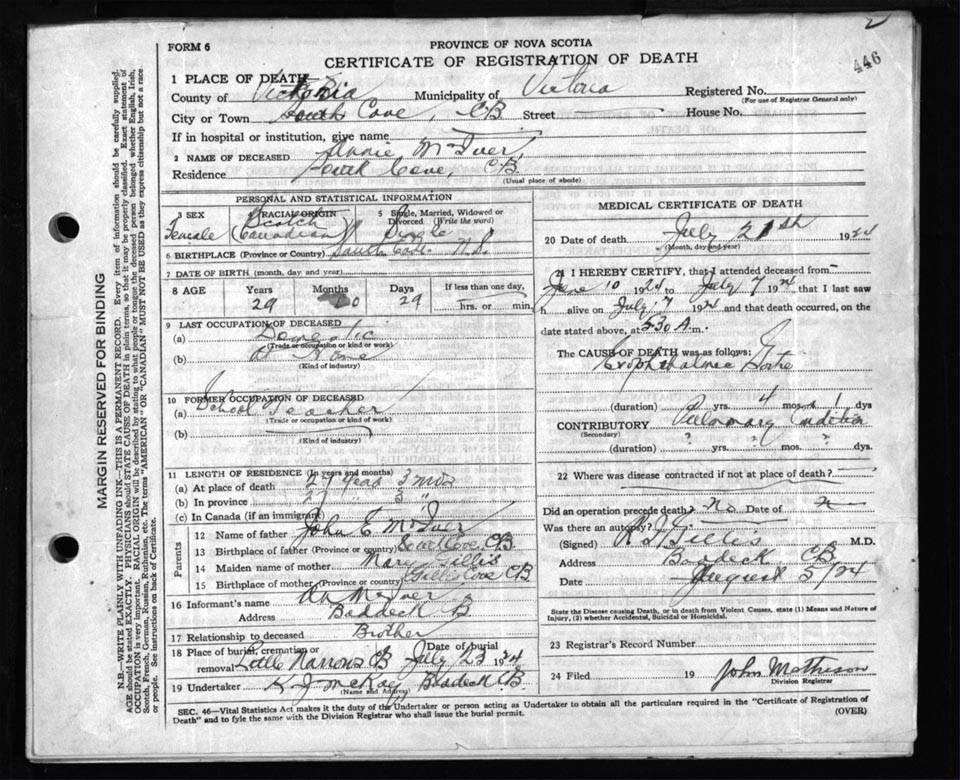 2
446
FORM 6
PROVINCE OF NOVA SCOTIA
CERTIFICATE OF REGISTRATION OF DEATH
1 PLACE OF DEATH
County of Victoria Municipality of Victoria Registered No.
(For use of Registrar General only)
City or Town South Cove, CB. Street House No.
If in hospital or institution, give name
2 NAME OF DECEASED Annie McIver
Residence South Cove, CB.
(Usual place of abode)
PERSONAL AND STATISTICAL INFORMATION
3 SEX 4 RACIAL ORIGIN 5 Single, Married, Widowed or Divorced (Write the word)
Female Scotch (Canadian) Single
6 BIRTHPLACE (Province or Country) South Cove. N.S.
7 DATE OF BIRTH (month, day and year)
8 AGE Years Months Days If less than one day,
29 29 hrs. or min.
9 LAST OCCUPATION OF DECEASED
(a) Domestic
(Trade or occupation or kind or work)
(b) At Home
(Kind of industry)
10 FORMER OCCUPATION OF DECEASED
(a) School Teacher
(Trade or occupation or kind of work)
(b)
(Kind of industry)
11 LENGTH OF RESIDENCE (In years and months)
(a) At place of death years 3 mos
(b) In province 3 "
(c) In Canada (if an immigrant)
Parents
12 Name of father John E McIver
13 Birthplace of father (Province or country) South Cove, CB
14 Maiden name of mother Mary Gillis
15 Birthplace of mother (Province or country) Gillis Cove CB
16 Informant's name McIver
Address Baddeck CB
17 Relationship to deceased Brother
18 Place of burial, cremation or removal Little Narrows CB Date of burial July 23 1924
19 Undertaker K J McKay Baddeck CB.
(Name and Address)
MEDICAL CERTIFICATE OF DEATH
20 Date of death July 21th 1924
(Month, day and year)
21 I HEREBY CERTIFY, that I attended deceased from
June 10 1924 to July 7 1924 that I last saw
h alive on July 7 1924 and that death occurred, on the
date stated above, at 5.30 A. m.
The CAUSE OF DEATH was as follows:
Exophthalmic Goitre
(duration) yrs. 4 mos. 1 dys
CONTRIBUTORY Pulmonary
(Secondary)
(duration) ? yrs. ? mos. ? dys.
22 Where was disease contracted if not at place of death?
Did an operation precede death? no Date of
Was there an autopsy?
(Signed) Gillis M.D.
Address Baddeck CB
Date August 5/24
State the Disease causing Death, or in death from Violent Causes, state (1) Means and Nature of Injury, (2) whether Accidental, Suicidal or Homicidal.
23 Registrar's Record Number
24 Filed 19 John Matheson
Division Registrar
SEC. 46—Vital Statistics Act makes it the duty of the Undertaker or person acting as Undertaker to obtain all the particulars required in the "Certificate of Registration of
Death" and to fyle the same with the Division Registrar who shall issue the burial permit.
(OVER)
MARGIN RESERVED FOR BINDING
N.B.—WRITE PLAINLY WITH UNFADING INK—THIS IS A PERMANENT RECORD. Every item of information should be carefully supplied.
AGE should be stated EXACTLY. PHYSICIANS should STATE CAUSE OF DEATH in plain terms, so that it may be properly classified. Exact statement of
OCCUPATION is very important. RACIAL ORIGIN will be described by stating to what people or tongue the deceased person belonged whether English, Irish,
Scotch, French, German, Russian, Ruthenian, etc. The terms "AMERICAN" OR "CANADIAN" MUST NOT BE USED as they express citizenship but not a race
or people. See instructions on back of Certificate.